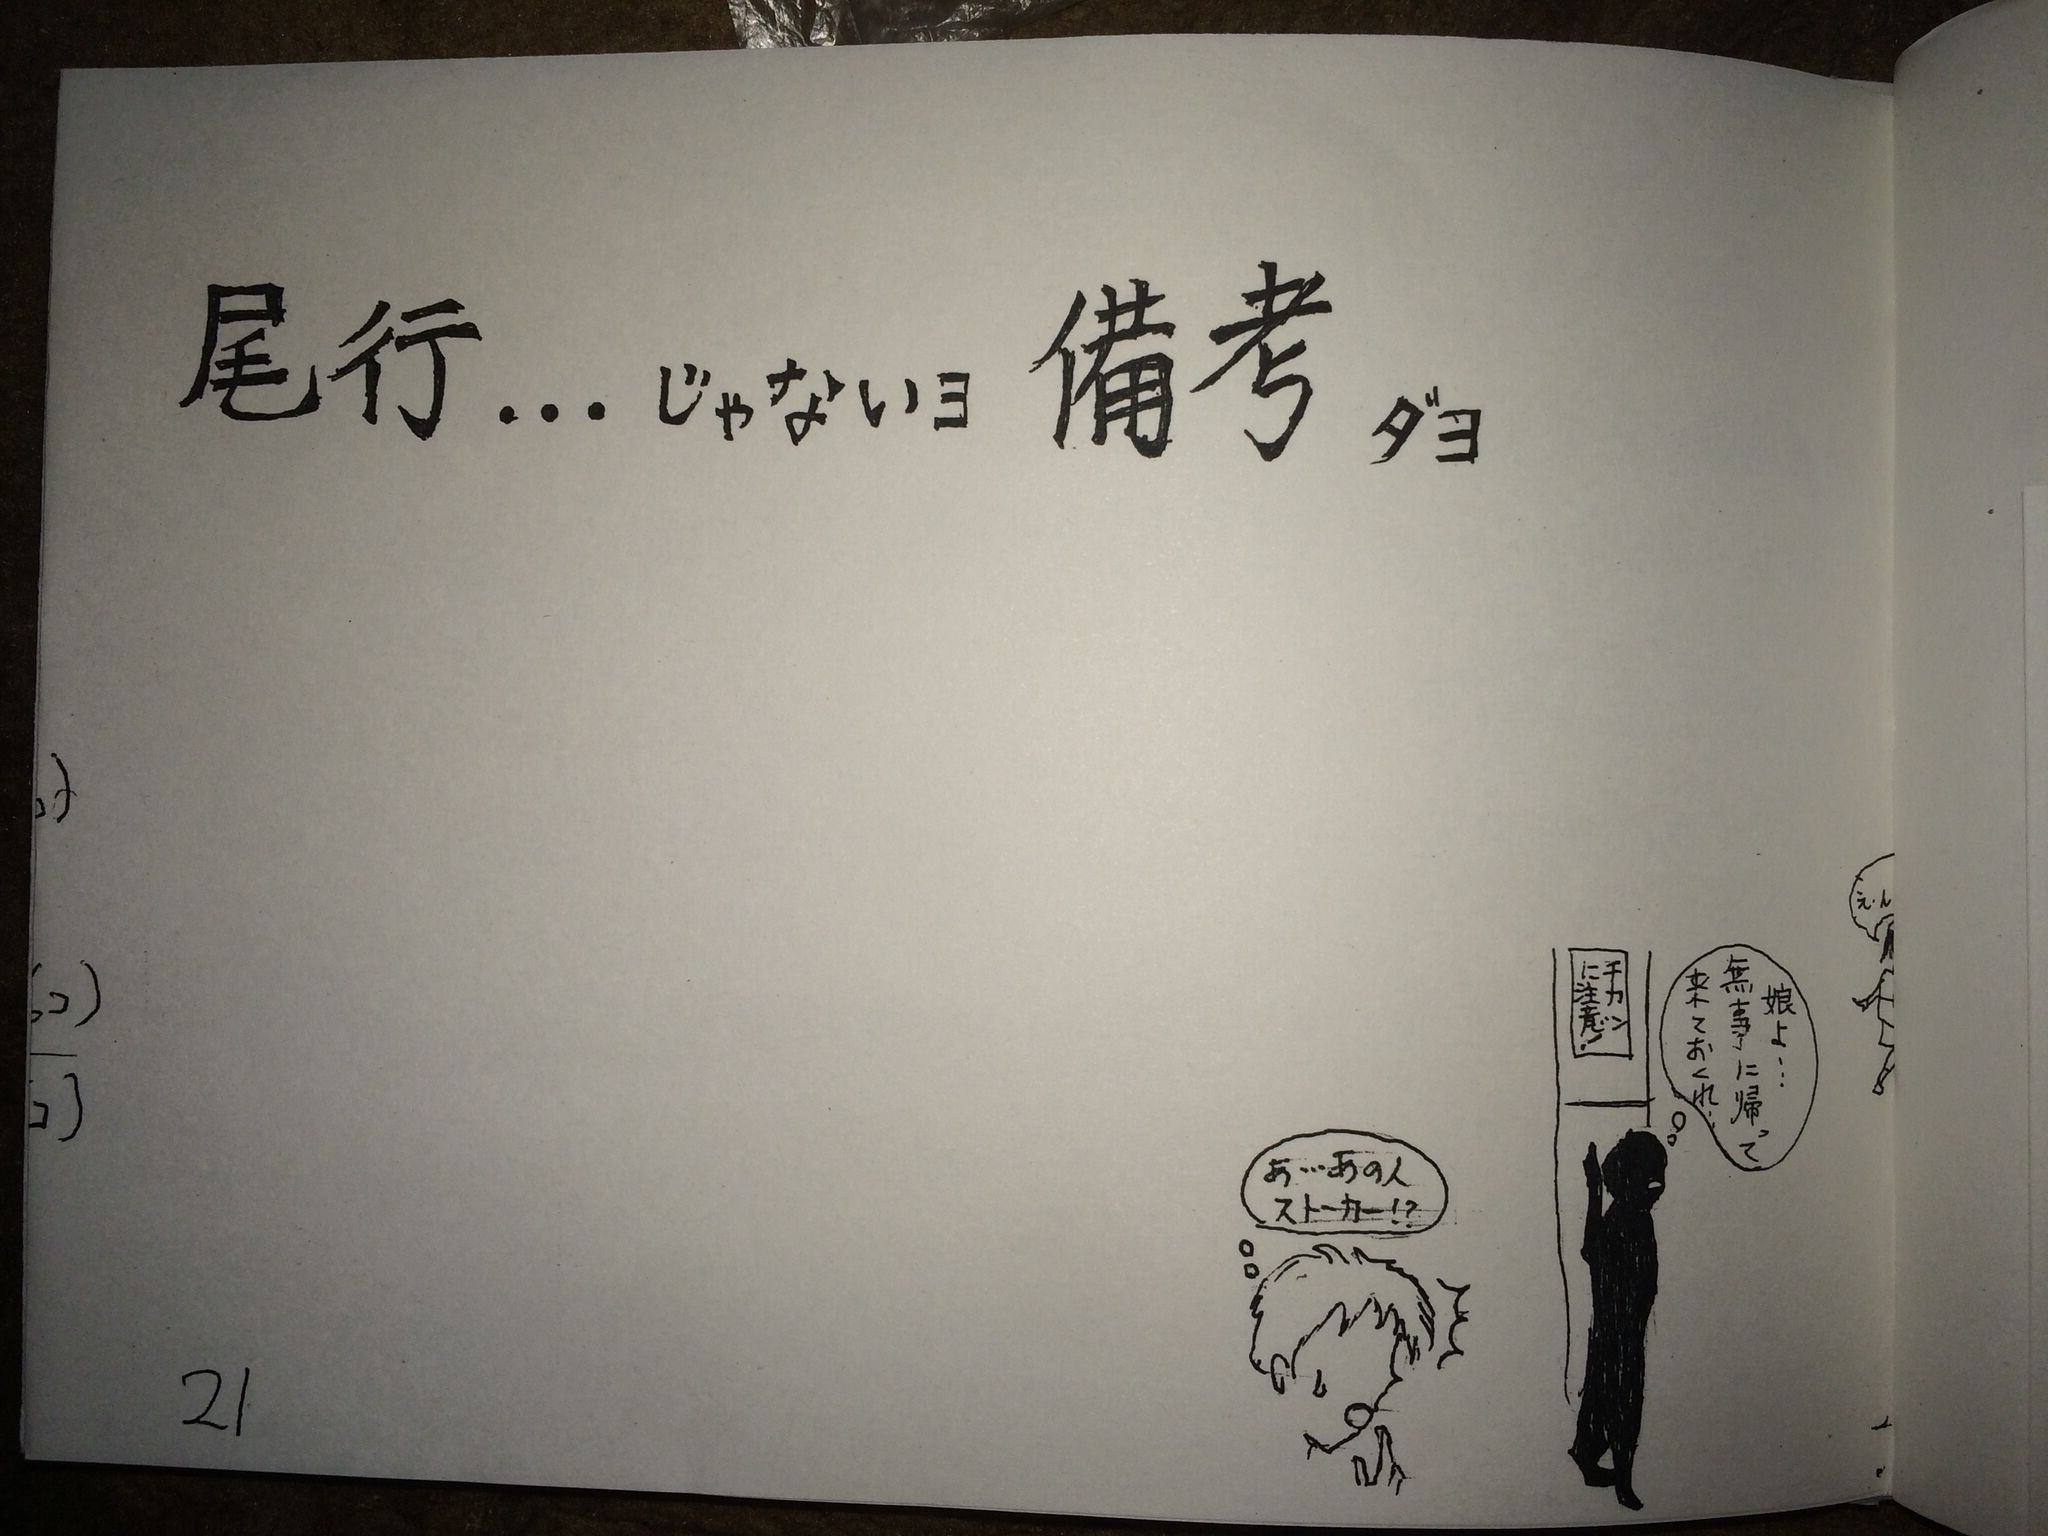 尾行...じゃないヨ 備考ダヨ
チカン
に注意!
娘よ…
無事に帰って
来ておくれ…
あ…あの人
ストーカー!?
21